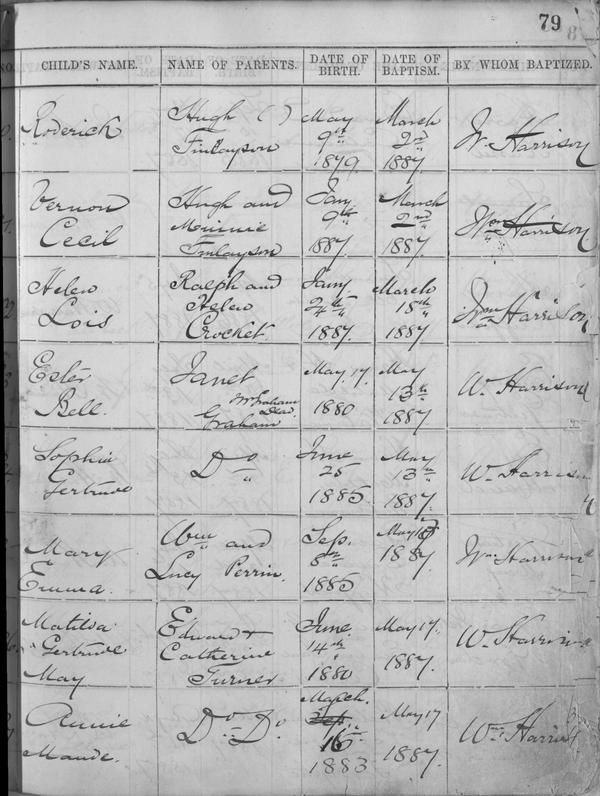 79
CHILD'S NAME. NAME OF PARENTS. DATE OF BIRTH. DATE OF BAPTISM. BY WHOM BAPTIZED.
Roderick
Hugh ( )
Finlayson
May
9th
1879
March
2nd
1887.
Wm Harrison
Vernon
Cecil
Hugh and
Minnie
Finlayson
Jany
9th
1887.
March
2nd
1887.
Wm Harrison
Helen
Lois
Ralph and
Helen
Crocket.
Jany
24th
1887.
March
15th
1887
Wm Harrison
Ester
Bell.
Janet
Mr Graham
Dead.
Graham
May. 17.
1880
May
13th
1887
Wm Harrison
Sophia
Gertrude
Do
June
25
1885
May
13th
1887.
Wm Harrison
Mary
Emma.
Wm and
Lucy Perrin.
Sep.
8th
1885
May
1887
Wm Harrison
Matilda
Gertrude
May
Edward +
Catherine
Turner
June.
14th
1880
May 17.
1887.
Wm Harrison
Annie
Maude.
Do. Do.
March.
16th
1883
May 17
1887.
Wm Harris